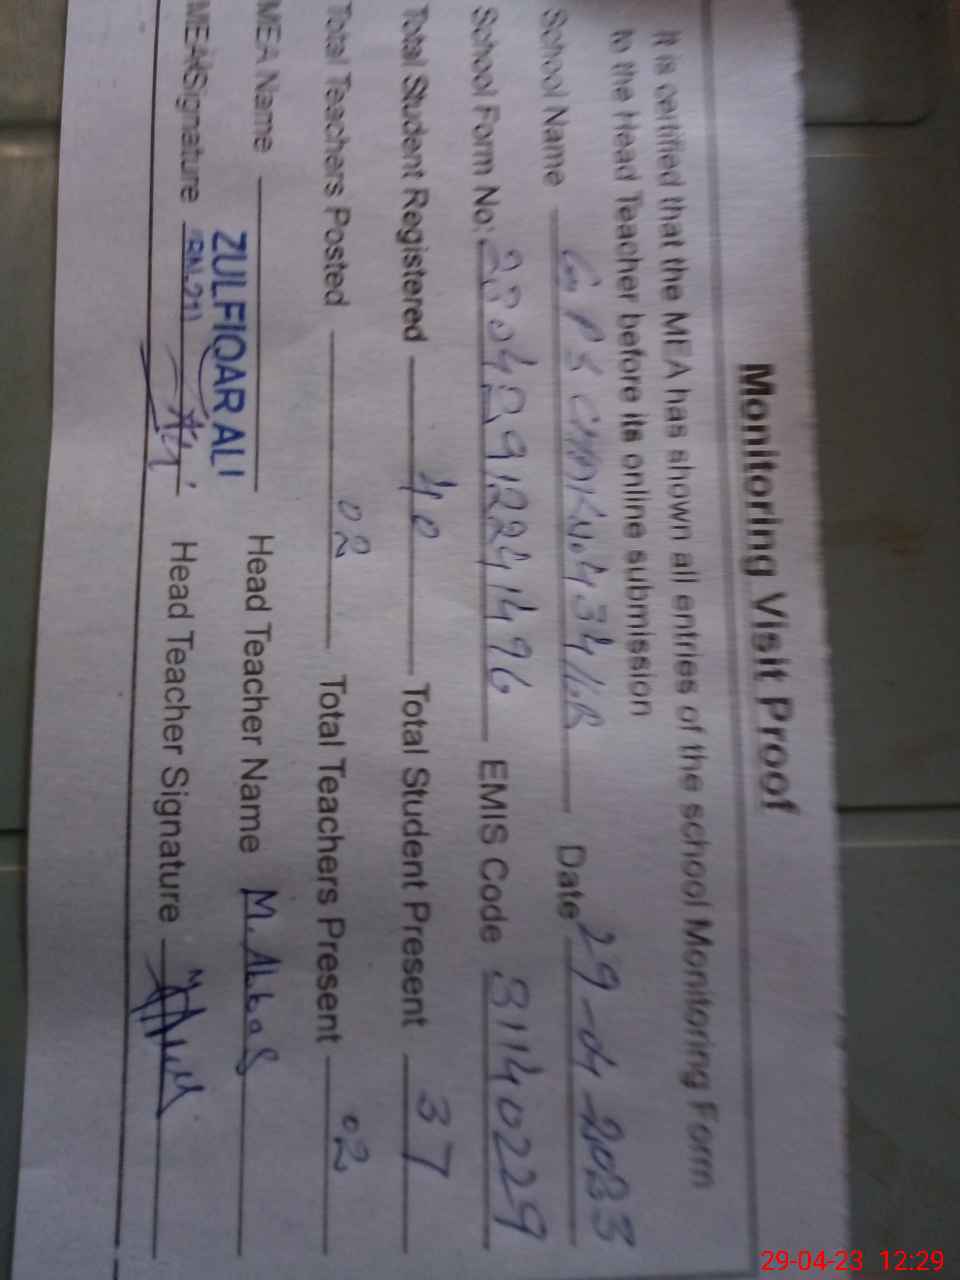 Monitoring Visit Proof
It is certified that the MEA has shown all entries of the school Monitoring Form
to the Head Teacher before its online submission
School Name GPS CHAK No. 434/6.R Date 29-04-2023
School Form No: Total Student Registered 40 Total Student Present 37
EMIS Code 31140229
Total Teachers Posted 02 Total Teachers Present 02
MEA Name ZULFIQAR ALI Head Teacher Name M. Abbas
MEA Signature (RN.21) Head Teacher Signature
29-04-23 12:29